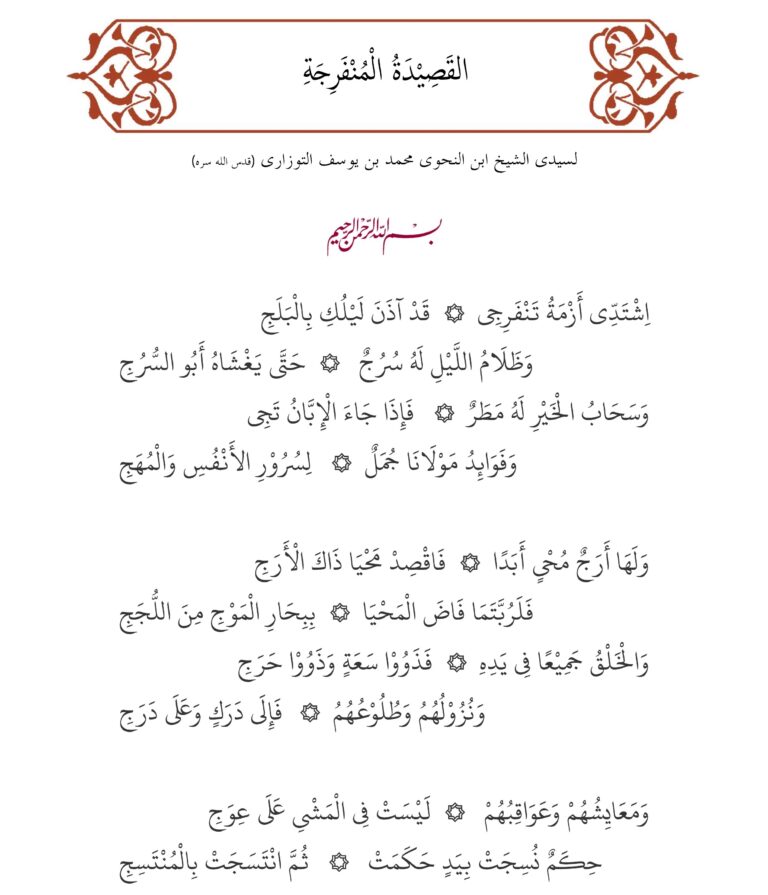 القَصِيْدَةُ الْمُنْفَرِجَةِ
لسيدى الشيخ ابن النحوى محمد بن يوسف التوزارى (قدس الله سره)
بسم الله الرحمن الرحيم
اِشْتَدِّى أَزْمَةُ تَنْفَرِجِى ۞ قَدْ آذَنَ لَيْلُكِ بِالْبَلَجِ
وَظَلَامُ اللَّيْلِ لَهُ سُرُجٌ ۞ حَتَّى يَغْشَاهُ أَبُو السُّرُجِ
وَسَحَابُ الْخَيْرِ لَهُ مَطَرٌ ۞ فَإِذَا جَاءَ الْإِبَّانُ تَجِى
وَفَوَائِدُ مَوْلَانَا جُمَلٌ ۞ لِسُرُوْرِ الأَنْفُسِ وَالْمُهَجِ
وَلَهَا أَرَجٌ مُحْيٍ أَبَدًا ۞ فَاقْصِدْ مَحْيَا ذَاكَ الْأَرَجِ
فَلَرُبَّتَمَا فَاضَ الْمَحْيَا ۞ بِبِحَارِ الْمَوْجِ مِنَ اللُّجَجِ
وَالْخَلْقُ جَمِيْعًا فِى يَدِهِ ۞ فَذَوُوْا سَعَةٍ وَذَوُوْا حَرَجِ
وَنُزُوْلُهُمُ وَطُلُوْعُهُمُ ۞ فَإِلَى دَرَكٍ وَعَلَى دَرَجِ
وَمَعَايِشُهُمْ وَعَوَاقِبُهُمْ ۞ لَيْسَتْ فِى الْمَشْيِ عَلَى عِوَجِ
حِكَمٌ نُسِجَتْ بِيَدٍ حَكَمَتْ ۞ ثُمَّ انْتَسَجَتْ بِالْمُنْتَسِجِ